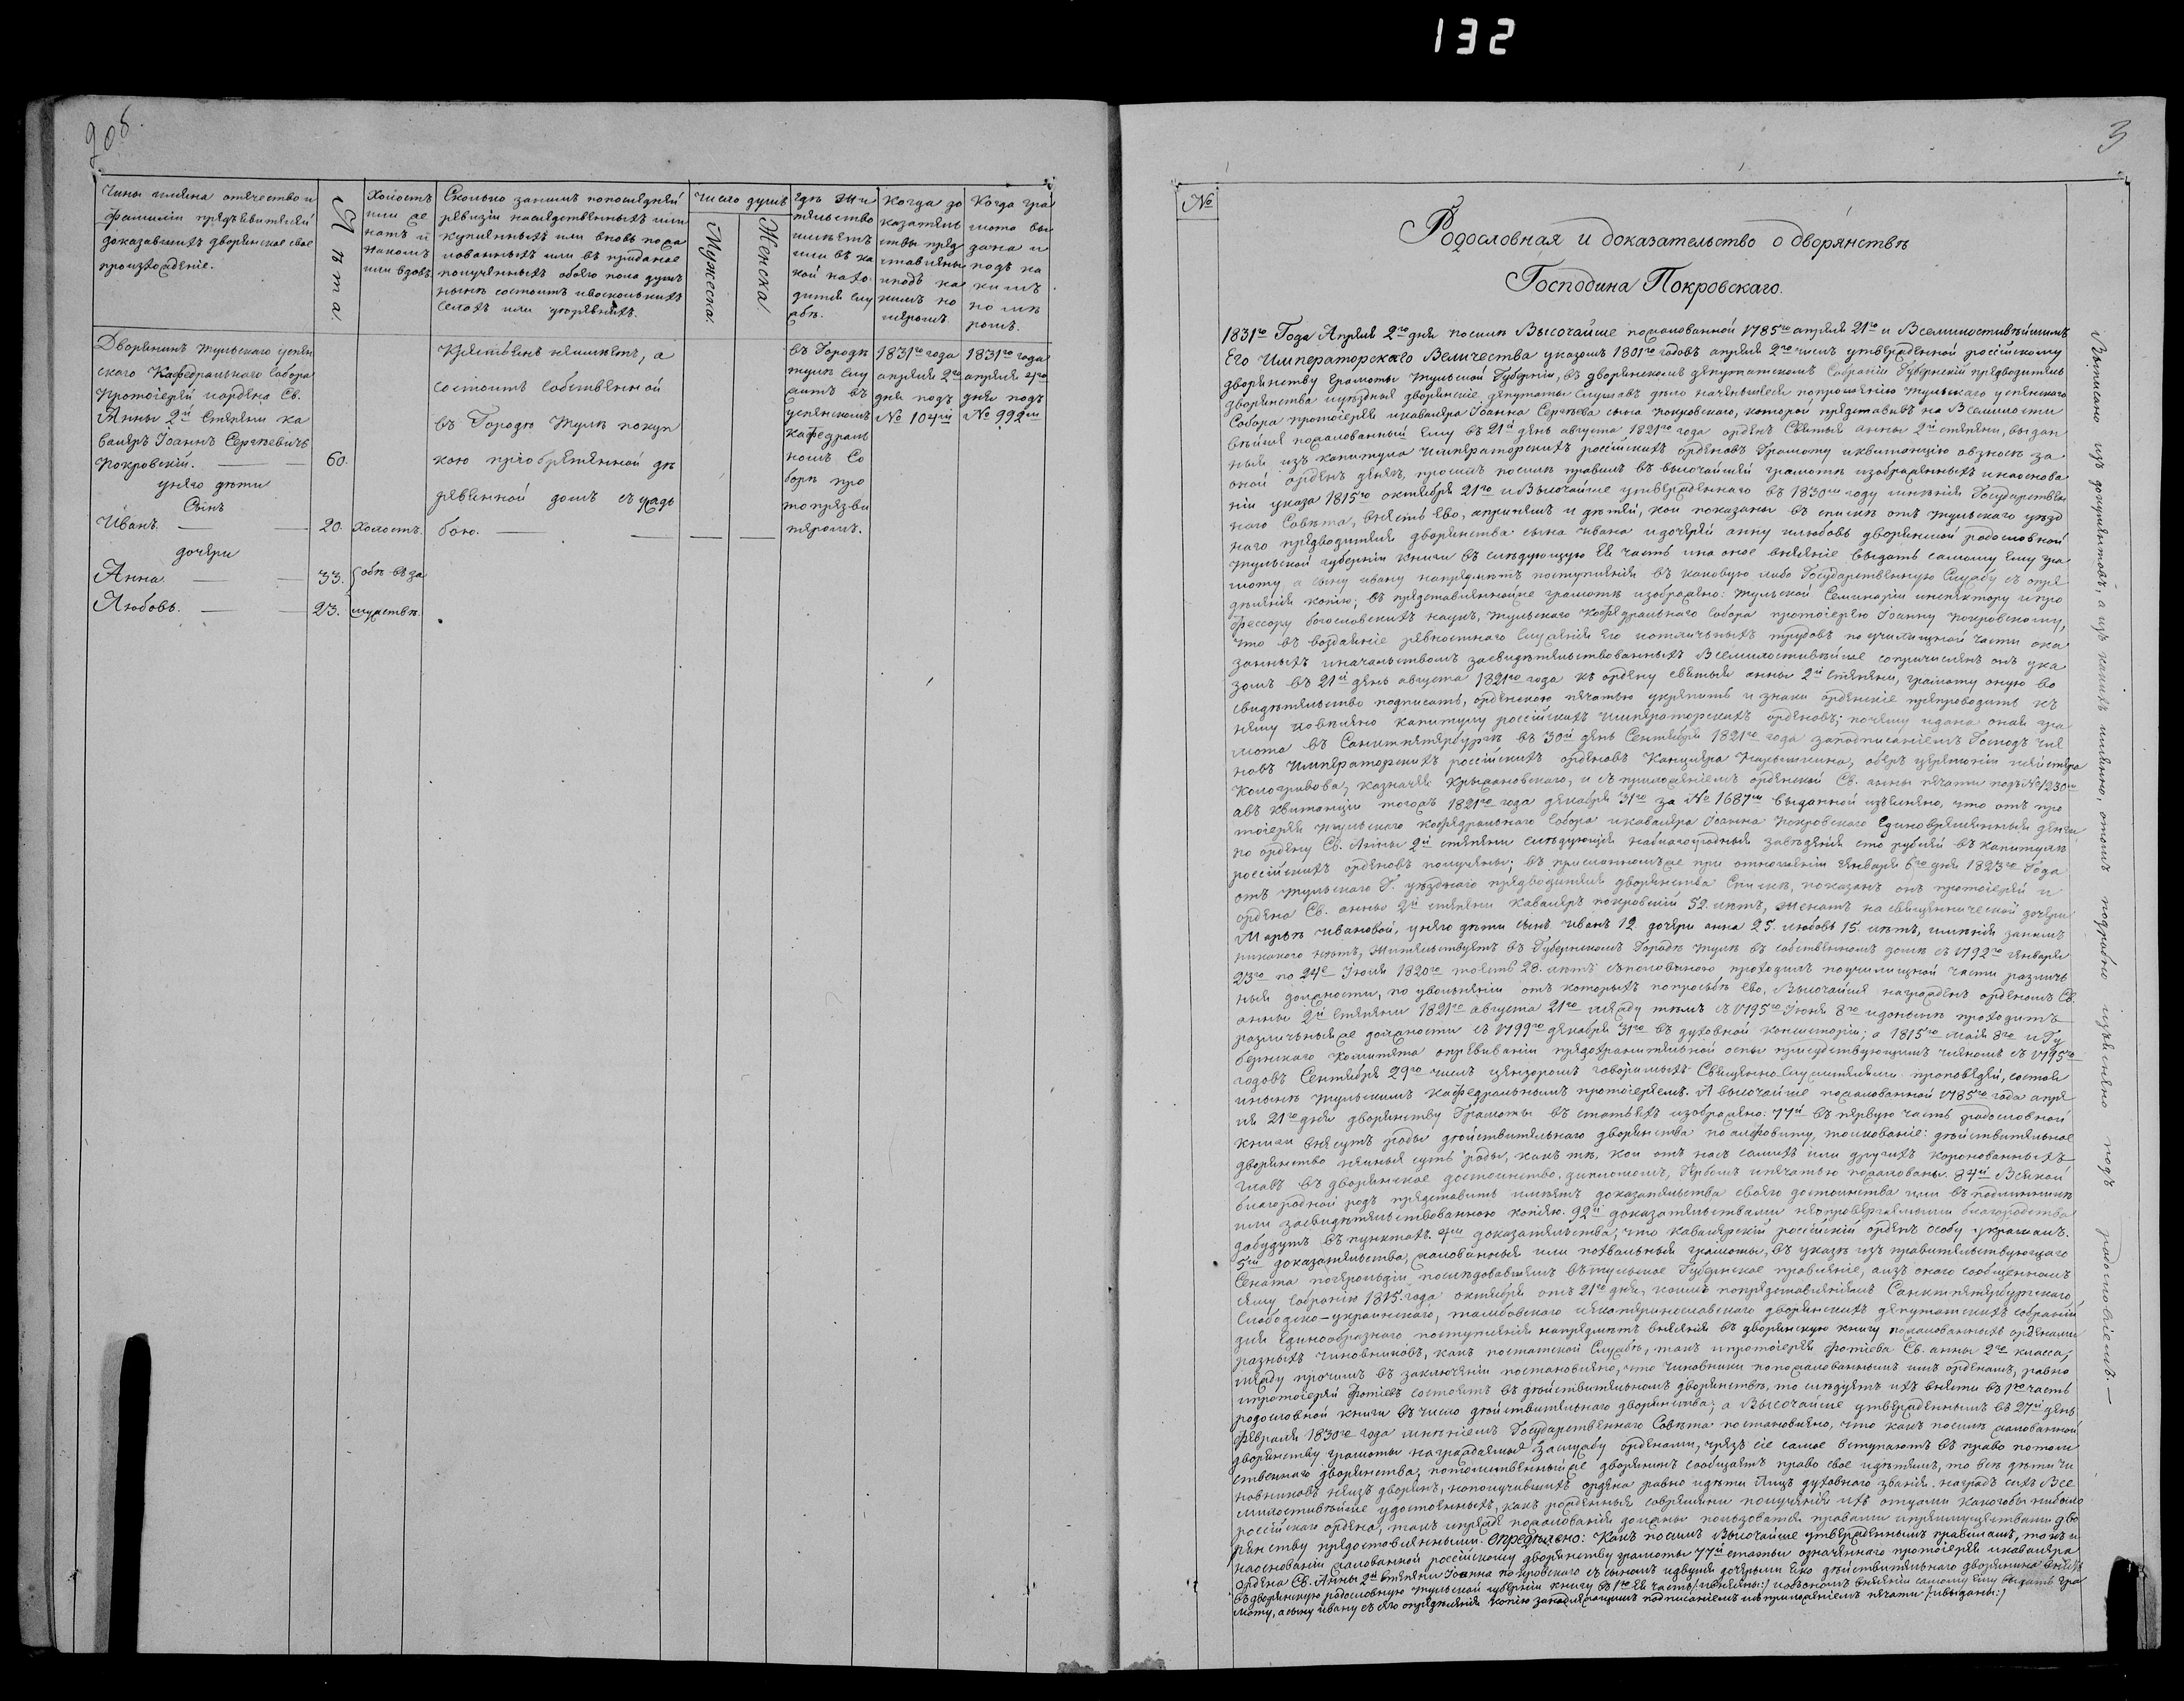 132
908.
3
Чины имена отечество и
фамиліи предъявителей
доказавшихъ дворянское свое
произхожденіе.
Лѣта.
Холостъ
или же
натъ и
на комъ
или вдовъ
Сколько заними попоследней
ревизіи наследственныхъ или
купленныхъ или вновь пожа
лованныхъ или въ приданое
полученныхъ обоего пола душъ
нынѣ состоитъ ивосколькихъ
селахъ или деревняхъ.
Число душъ
Мужеска.
Женска.
гдѣ жи
тельство
имѣетъ
или въ ка
кой нахо
дится слу
жбѣ.
Когда до
казатель
ства пред
ставлены
иподъ ка
кимъ но
меромъ.
Когда гра
мота вы
дана и
подъ ка
кимъ
номе
ромъ.
Дворянинъ тульскаго успен
скаго Кафедральнаго Собора
Протоіерей иордена Св.
Анны 2й степени ка
валеръ Іоаннъ Сергѣевичь
Покровскій. 60.
унего дѣти
Сынъ
Иванъ. 20. холостъ.
дочери
Анна. 33. обѣ въ за
Любовь. 23. мужствѣ.
Крестьянъ неимѣетъ, а
состоитъ собственной
въ Городѣ Тулѣ покуп
кою приобретенной де
ревянной домъ съ усадь
бою.
въ Городѣ
тулѣ слу
житъ въ
успенскомъ
кафедраль
номъ Со
борѣ про
топрезви
теромъ.
1831го года
апреля 2го
дня подъ
№ 104мъ
1831го года
апреля 4го
дня подъ
№ 992мъ
№
Родословная и доказательство о дворянствѣ
Господина Покровскаго.
1831го Года Апреля 2го дня посилѣ Высочайше пожалованной 1785го апреля 21го и Всемилостивѣйшимъ
Его Императорскаго Величества указомъ 1801го годовъ апреля 2го числъ утвержденной россійскому
дворянству грамоты Тульской Губерніи, въ дворянскомъ депутатскомъ Собраніи Губернскій предводитель
дворянства иуѣздные дворянскіе депутаты слушавъ дѣло начавшееся попрошенію тульскаго успенскаго
Собора протоіерея икавалера Іоанна Сергѣева сына покровскаго, которой представивъ на Всемилости
вѣйше пожалованный ему въ 21й день августа 1821го года орденъ Святыя анны 2й степени, выдан
ныя изъ капитула Императорскихъ россійскихъ орденовъ Грамоту иквитанцію овзносѣ за
оной орденъ денегъ, просилъ посилѣ правилъ въ высочайшей грамотѣ изображенныхъ инаоснова
ніи указа 1815го октября 21го иВысочайше утвержденнаго въ 1830мъ году мнѣнія Государствен
наго Совѣта, внесть ево, апринемъ и дѣтей, кои показаны въ спискѣ отъ тульскаго уѣзд
наго предводителя дворянства: сына ивана идочерей анну илюбовь дворянской родословной
тульской губерніи книги въ слѣдующую ея часть ина оное внесеніе выдать самому ему гра
моту, а сыну ивану напредметъ поступленія въ каковую либо Государственную Службу съ опре
дѣленія копію; въ представленнойже грамотѣ изображено: тульской Семинаріи инспектору ипро
фессору богословскихъ наукъ, тульскаго кафедральнаго собора протоіерею Іоанну покровскому,
что въ воздаяніе ревностнаго служенія его иотличныхъ трудовъ поучилищной части ока
занныхъ иначальствомъ засвидѣтельствованныхъ Всемилостивѣйше сопричисленъ онъ ука
зомъ въ 21й день августа 1821го года къ ордену святыя анны 2й степени, грамоту оную во
свидѣтельство подписать, орденскою печатью укрѣпить и знаки орденскіе препроводить къ
нему повелѣно капитулу россійскихъ Императорскихъ орденовъ; почему идана оная гра
мота въ Санктпетербургѣ въ 30й день Сентября 1821го года заподписаніемъ Господъ чле
новъ Императорскихъ россійскихъ орденовъ Канцлера Нарышкина, оберъ церемоній мейстера
Кологривова, казначея Крыжановскаго, и съ приложеніемъ орденской Св. анны печати подъ №1230мъ
авъ квитанціи тогожъ 1821го года декабря 31го за № 1687мъ выданной изъяснено, что отъ про
тоіерея тульскаго кафедральнаго собора икавалера Іоанна покровскаго единовременныя деньги
по ордену Св. Анны 2й степени слѣдующія набогоугодныя заведенія сто рублей въ капитулѣ
россійскихъ орденовъ получены; въ присланномъже при отношеніи генваря 6го дня 1823го Года
отъ тульскаго Г. уѣзднаго предводителя дворянства Спискѣ, показанъ онъ протоіерей и
ордена Св. анны 2й степени кавалеръ покровскій 52. лѣтъ, женатъ на священнической дочери
Марьѣ ивановой, унего дѣти сынъ иванъ 12 дочери анна 25. илюбовь 15. лѣтъ, имѣнія занимъ
никакого нѣтъ, жительствуетъ въ Губернскомъ Городѣ тулѣ въ собственномъ домѣ съ 1792го генваря
23го по 24е Іюля 1820го тоесть 28. лѣтъ съполовиною проходилъ поучилищной части различ
ныя должности, по увольненіи отъ которыхъ попросьбѣ ево, Высочайше награжденъ орденомъ Св.
анны 2й степени 1821го августа 21го между тѣмъ съ 1795го Іюня 8го идонынѣ проходитъ
различныяже должности съ 1799го декабря 31го въ духовной консисторіи; а 1815го маія 8го иГу
бернскаго Комитета опрививаніи предохранительной оспы присудствующимъ членомъ съ 1795го
годовъ Сентября 29го числъ цензоромъ говоримыхъ Священно-Служителями проповѣдей, состоя
инынѣ Тульскимъ кафедральнымъ протоіереемъ. А высочайше пожалованной 1785го года апре
ля 21го дня дворянству Грамоты въ статьяхъ изображено: 77й въ первую часть родословной
книги внесутъ роды дѣйствительнаго дворянства по алфовиту, толкованіе: дѣйствительное
дворянство неиныя суть роды, какъ тѣ, кои отъ насъ самихъ или другихъ коронованныхъ
главъ въ дворянское достоинство дипломомъ, гербомъ ипечатью пожалованы. 84й Всякой
благородной родъ представить имѣетъ доказательства своего достоинства или въ подлинникѣ
или засвидѣтельствованною копіею. 92й доказательствами неопровергаемыми благородства
дабудутъ въ пунктахъ. 4мъ доказательства, что кавалерскій россійскій орденъ особу украшалъ.
5мъ доказательства, жалованныя или похвальныя грамоты, въ указѣ изъ правительствующаго
Сената погерольдіи послѣдовавшемъ вътульское Губернское правленіе, аизъ онаго сообщенномъ
сему собранію 1815. года октября отъ 21го дня, коимъ попредставленіямъ Санктпетербургскаго,
Слободско-украинскаго, тамбовскаго иекатеринославскаго дворянскихъ депутатскихъ собраній
для единообразнаго поступленія напредметъ внесенія въ дворянскую книгу пожалованныхъ орденами
разныхъ чиновниковъ, какъ постатской Службѣ, такъ ипротоіерея фотіева Св. анны 2го класса,
между прочимъ въ заключеніи постановлено, что чиновники попожалованнымъ имъ орденамъ, равно
ипротоіерей Фотіевъ состоятъ въ дѣйствительномъ дворянствѣ, то слѣдуетъ ихъ внести въ 1ю часть
родословной книги въ число дѣйствительнаго дворянства; а Высочайше утвержденнымъ въ 27й день
февраля 1830го года мнѣніемъ Государственнаго Совѣта постановлено, что какъ посилѣ жалованной
дворянству грамоты награждаемые заслужбу орденами, чрезъ сіе самое вступаютъ въ право потом
ственнаго дворянства, потомственныйже дворянинъ сообщаетъ право свое идѣтямъ, то всѣ дѣти чи
новниковъ неизъ дворянъ, нополучившихъ ордена равно идѣти лицъ духовнаго званія наградъ сихъ Все
милостивѣйше удостоенныхъ, какъ рожденныя современи полученія ихъ отцами какогобы нибыло
россійскаго ордена, такъ ипрежде пожалованія должны пользоваться правами ипреимуществами дво
рянству предоставленными. Опредѣлено: Какъ посимъ Высочайше утвержденнымъ правиламъ, такъ и
наоснованіи жалованной россійскому дворянству грамоты 77й статьи означеннаго протоіерея икавалера
ордена Св. Анны 2й степени Іоанна покровскаго съ сыномъ идвумя дочерьми яко дѣйствительнаго дворянина внесть
въдворянскую родословную тульской губерніи книгу въ 1ю ея часть (:ивнесены:) итаковомъ внесеніи самому ему выдать гра
моту, асыну ивану съ сего опредѣленія копію занадлежащимъ подписаніемъ исприложеніемъ печати (:ивыданы:)
Выписано изъ документовъ, а изъ какихъ имянно, отомъ подробно изъяснено подъ родословіемъ.